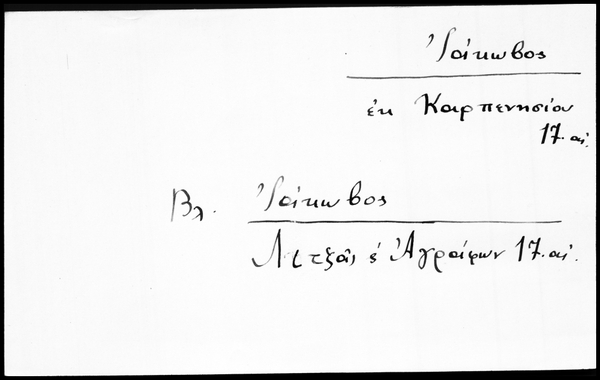 Ἰάκωβος
ἐκ Καρπενησίου
17. αἰ.
Βλ. Ἰάκωβος
Λιτζᾶς ἐ Ἀγράφων 17. αἰ.